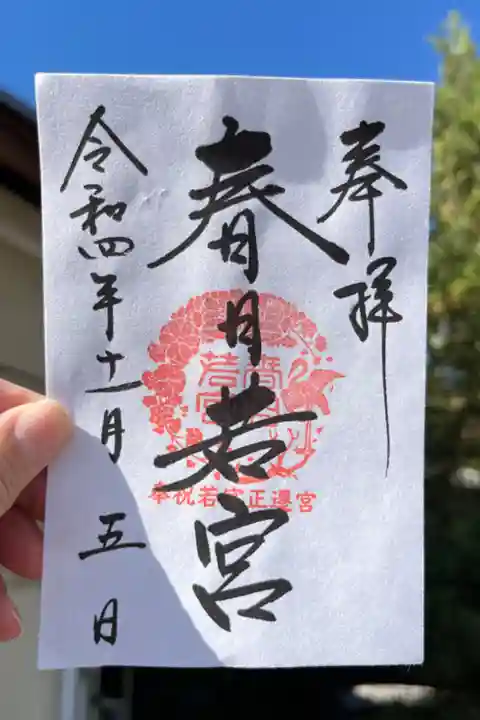 奉拝
春日若宮
令和四年十一月五日
春日
若宮
奉祝若宮正遷宮